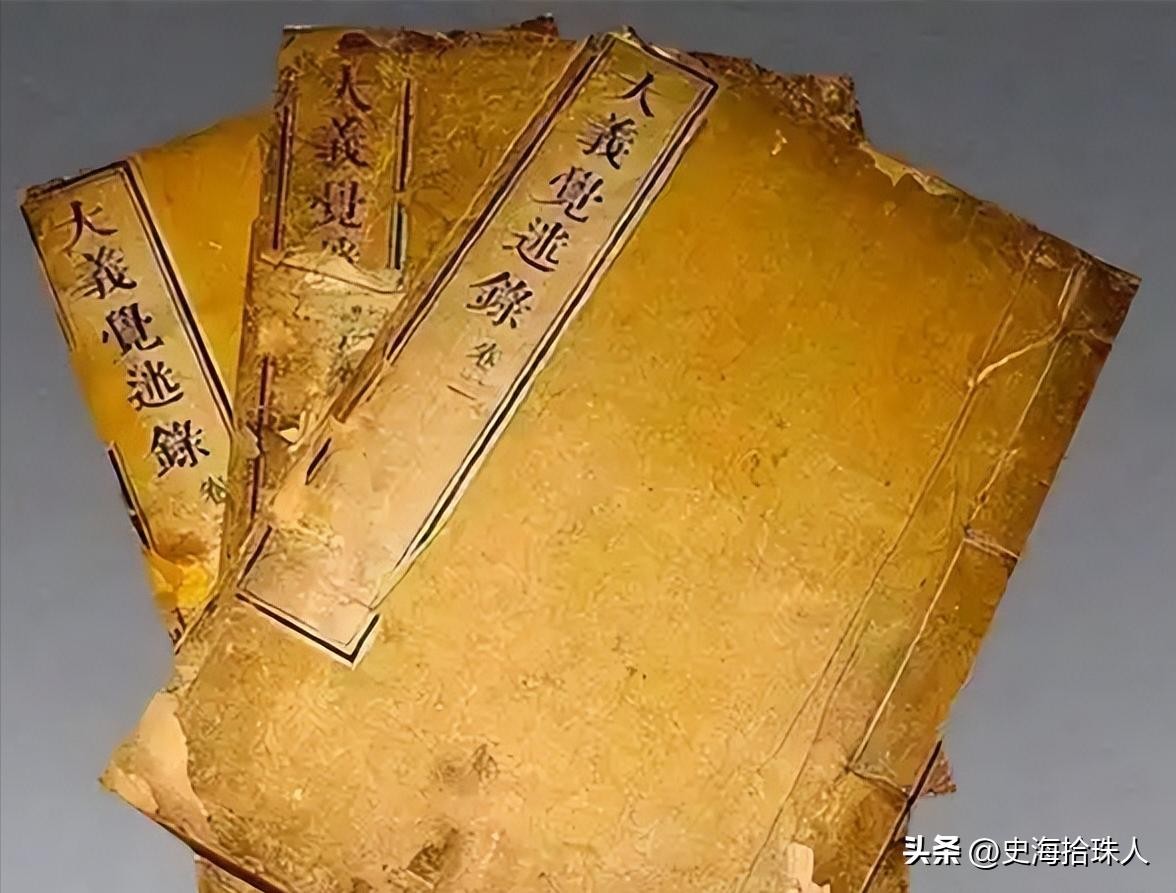 大義覺迷錄 卷
大義覺
大義覺迷錄 卷二
头条 @史海拾珠人